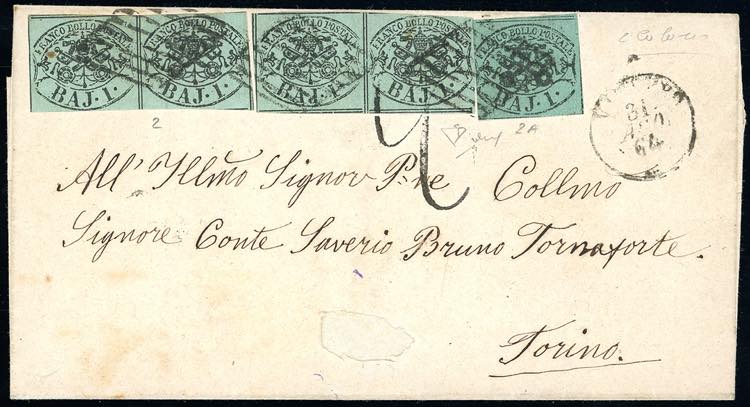 2 Colores
FRANCO BOLLO POSTALE
BAJ. 1.
FRANCO BOLLO POSTALE
BAJ. 1.
FRANCO BOLLO POSTALE
BAJ. 1.
FRANCO BOLLO POSTALE
BAJ. 1.
FRANCO BOLLO POSTALE
BAJ. 1.
2
2A
31
AGO.
64
All' Illmo Signor Pne Collmo
Signore Conte Saverio Bruno Tornaforte.
Torino.